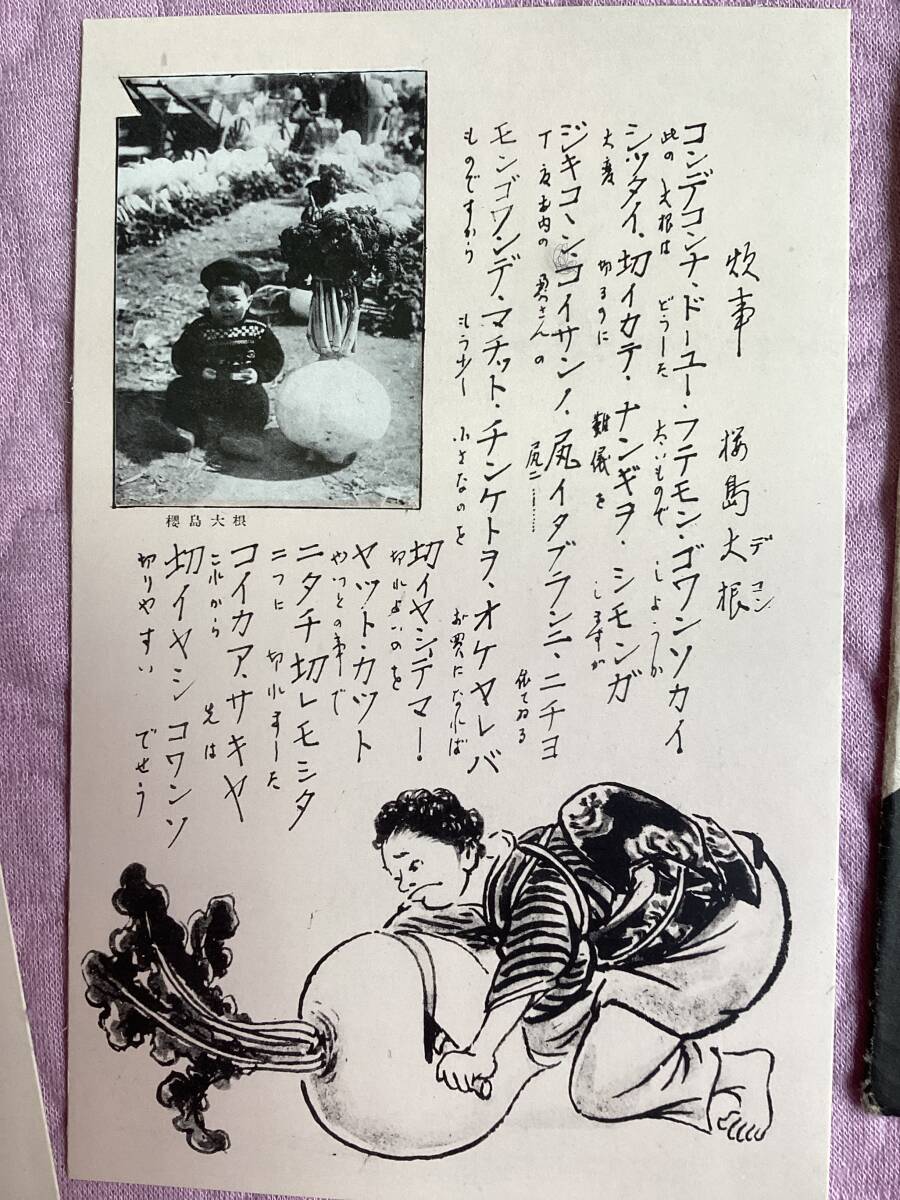 炊事 桜島大根
デコン
コンデコンナ・ドーユー・フテモン・ゴワンソカイ
此の大根は どうした 太いもので しようか
シッタイ、切イカテ・ナンギヲ・シモンガ
大変 切るのに 難儀を しますが
ジキコンンコイサンノ、尻イタブランニ・ニチヨ
丁度 奥さんの 尻二…… 似てゐる
モンゴワンデ・マチット・チンケトヲ・オケヤレバ
ものですから もう少し 小さなのを お買になれば
切イヤシデマー!
切れよいのを
ヤット・カット
やつとの事で
ニタチ切レモシタ
二つに 切れました
コイカア・サキヤ
これから 先は
切イヤシ コワンソ
切りやすい でせう
櫻島大根